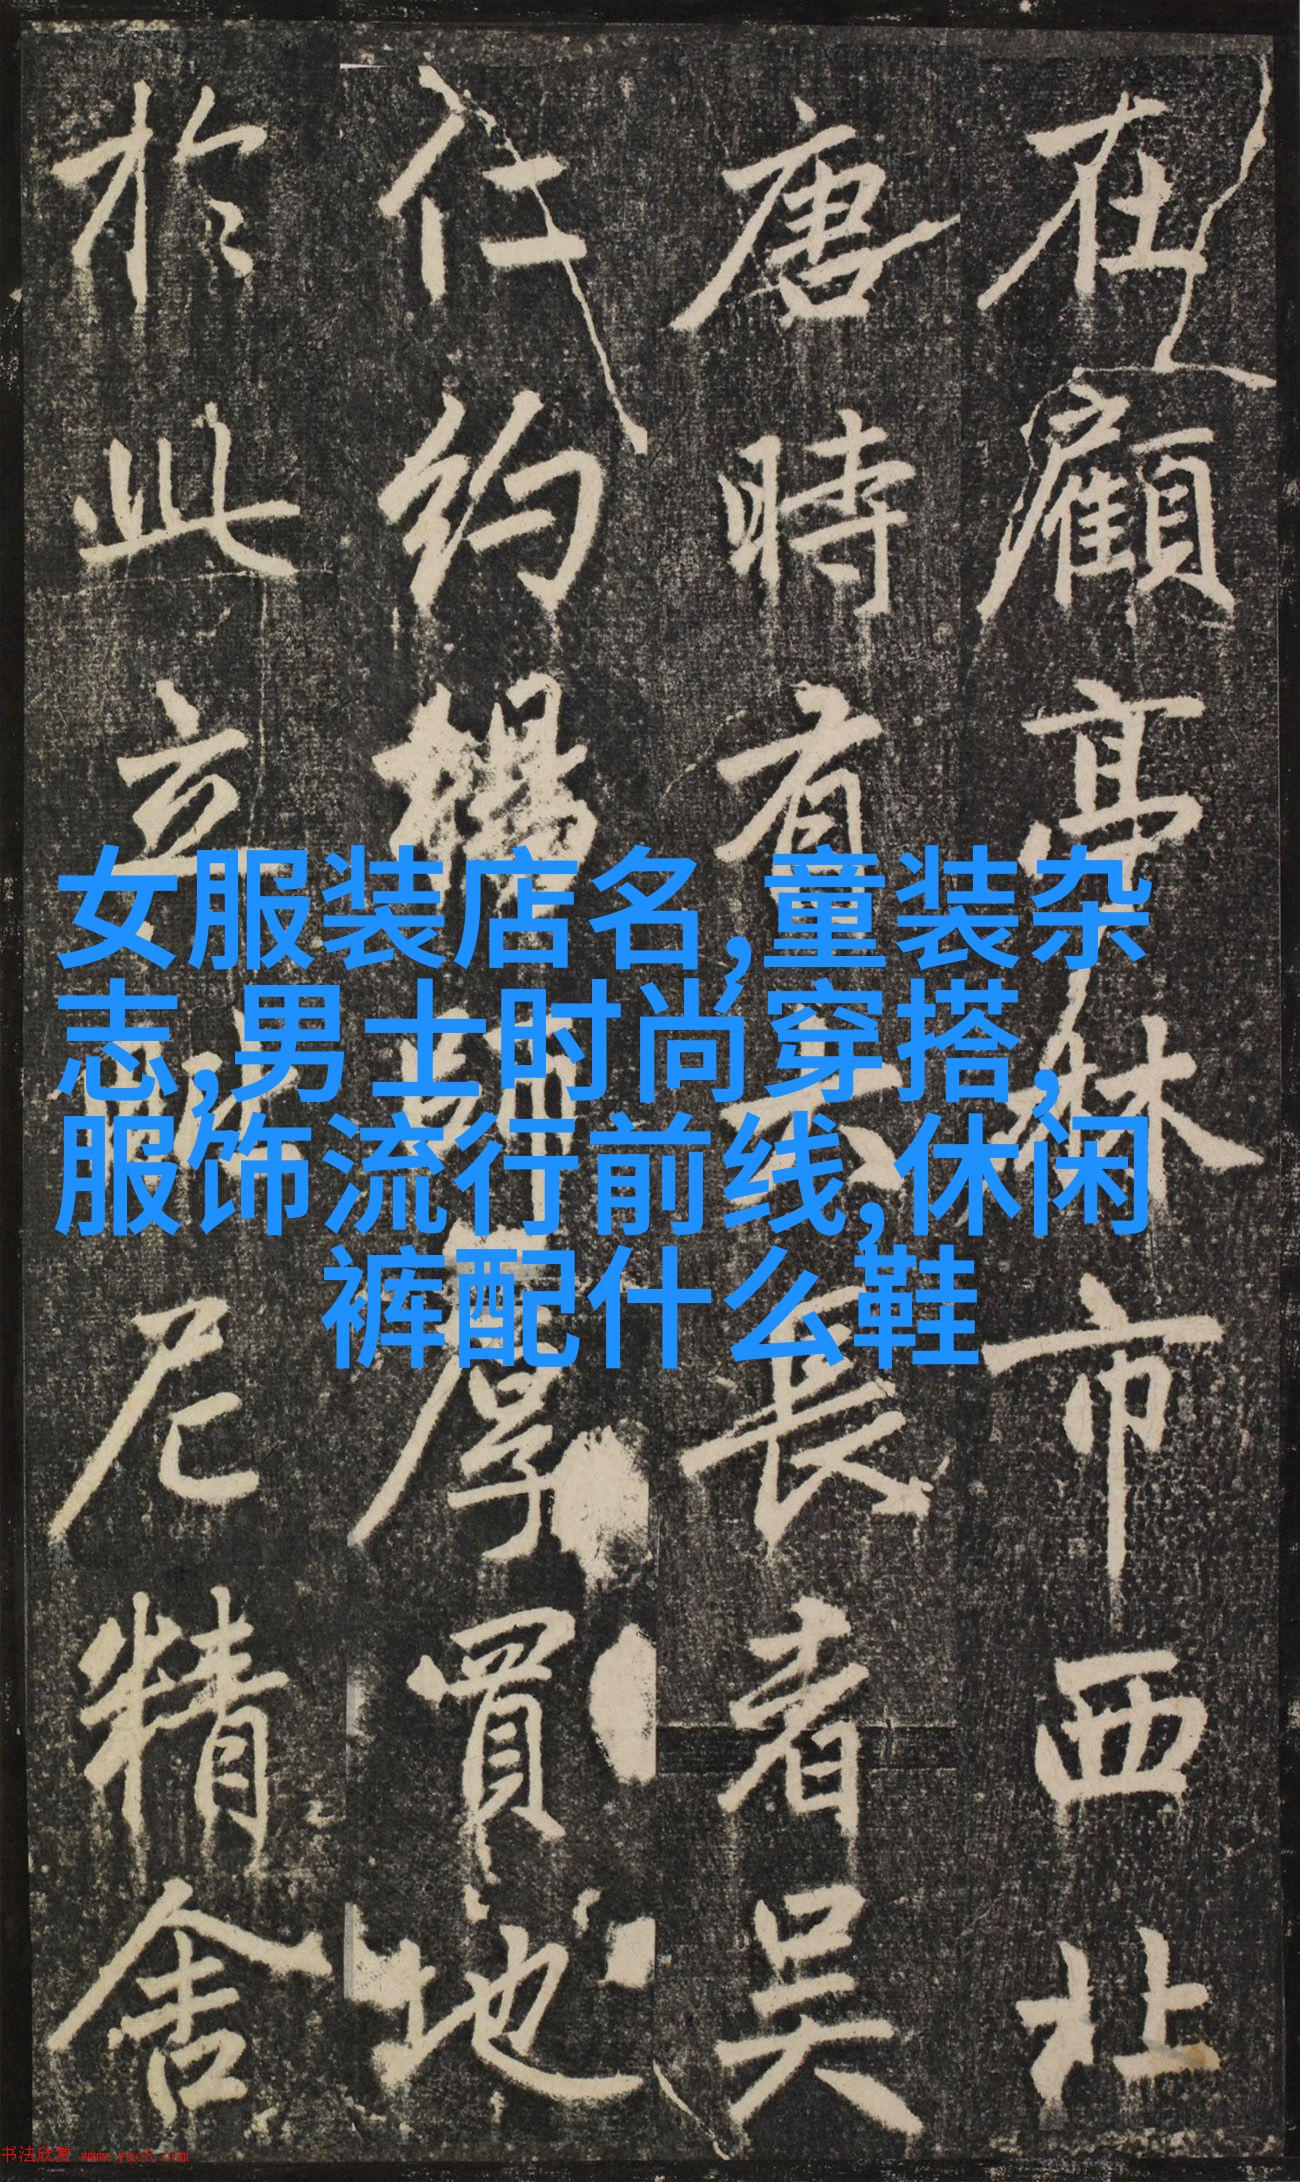 在顧亭林市西北
唐時有長者吴
仁約厚買地
於此立尼精舍
女服装店名,童装杂
志,男士时尚穿搭,
服饰流行前线,休闲
裤配什么鞋
书法欣赏 www.yac8.com